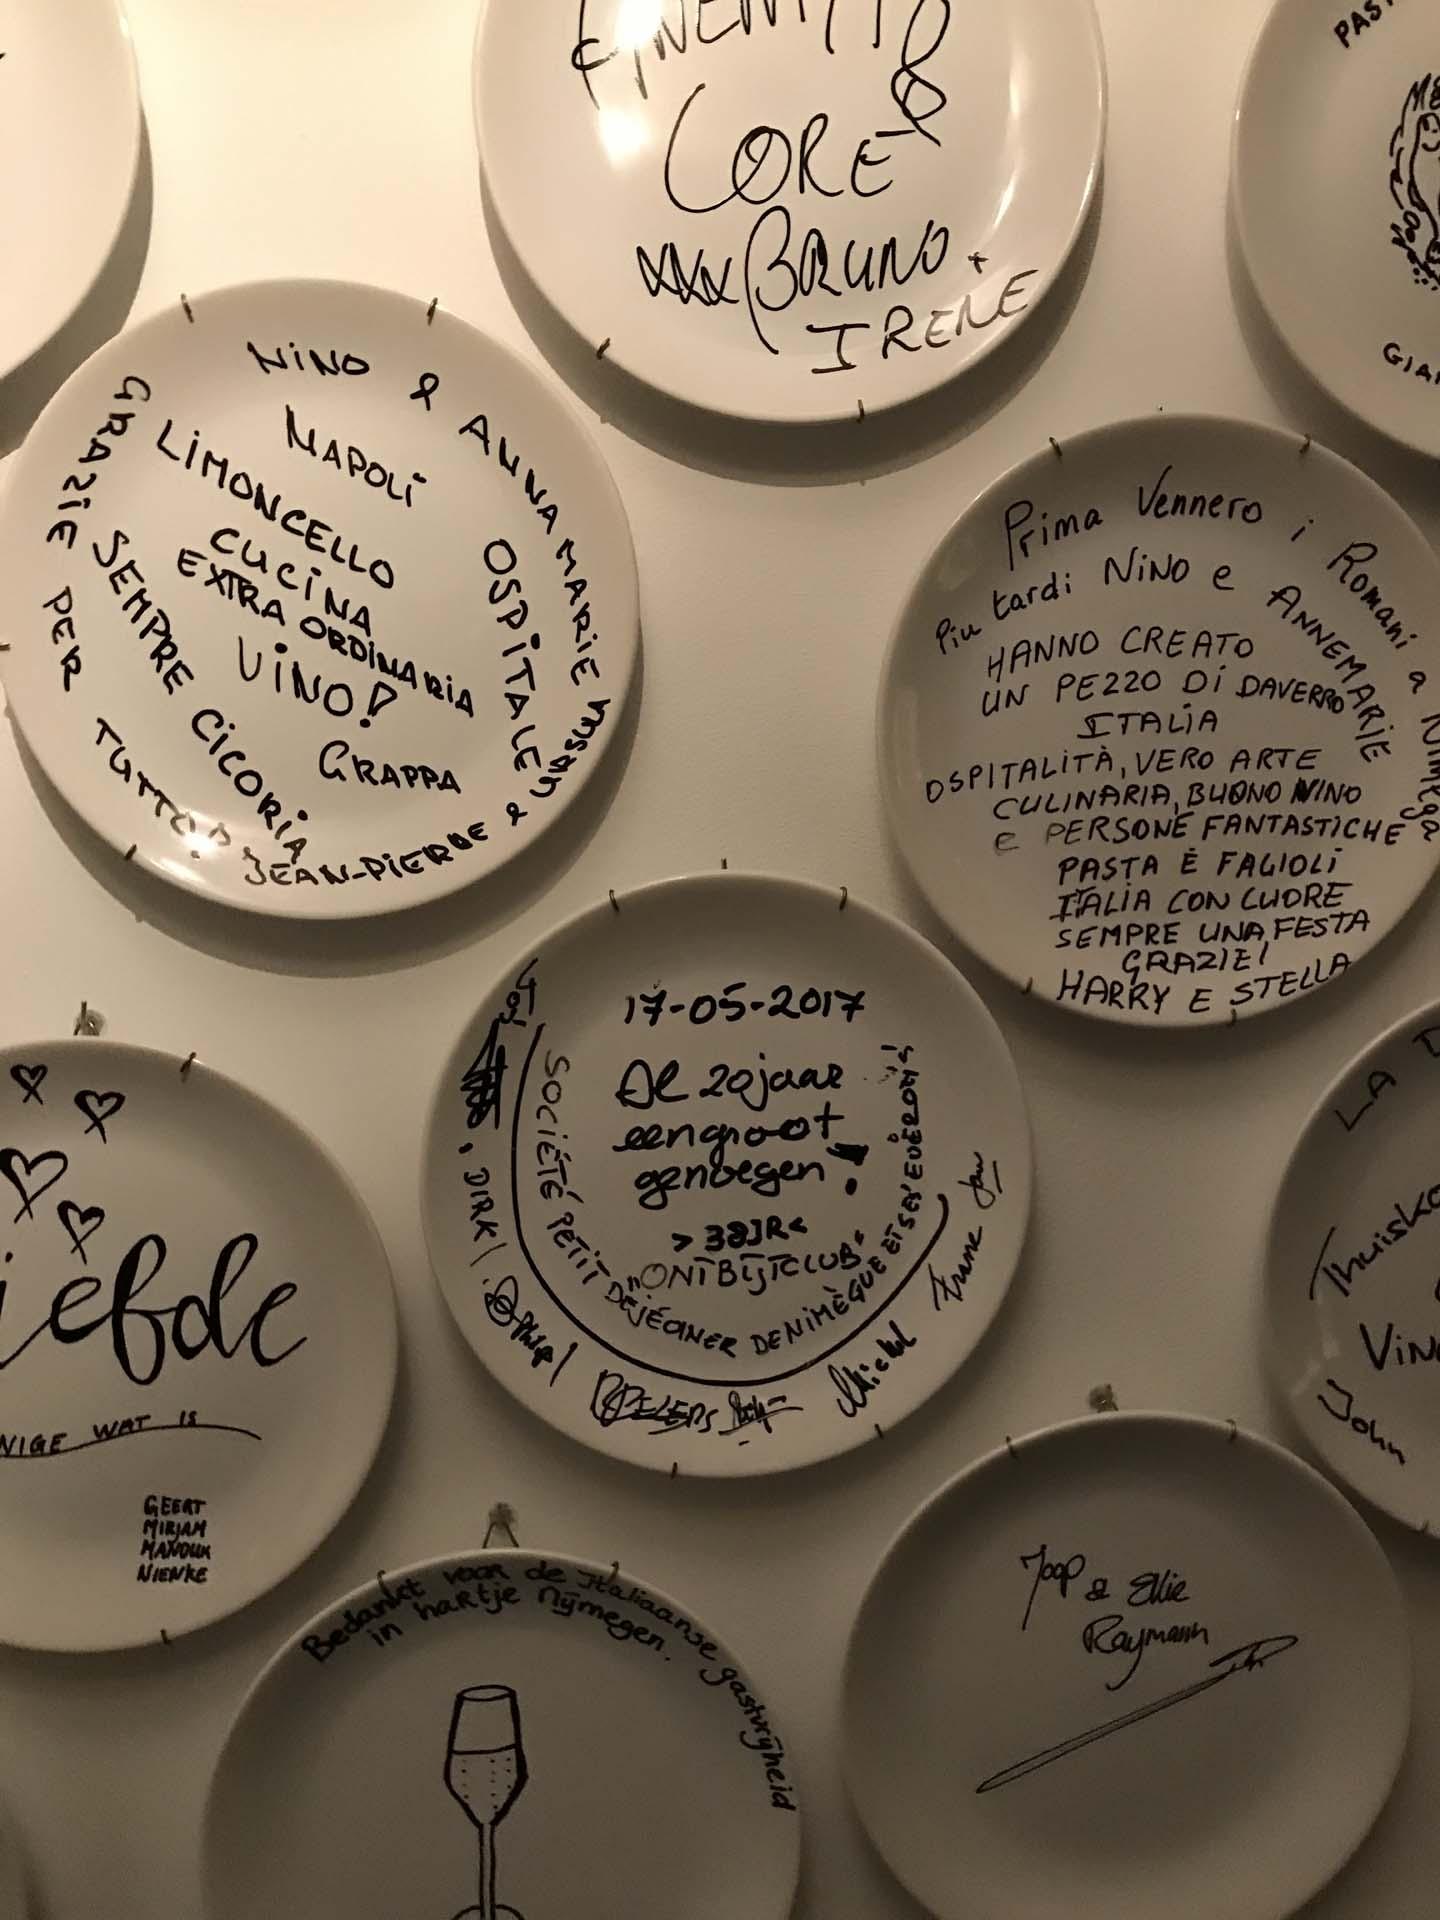 CORE
xxx BRUNO +
IRENE
PAST
GIAN
NINO & ANNAMARIE
NAPOLI
LIMONCELLO
CUCINA
EXTRA ORDINARIA
VINO!
GRAPPA
OSPITALE
SEMPRE CICORIA
GRAZIE PER TUTTO!
JEAN-PIERRE &
Prima Vennero i Romani a Nimega
Piu tardi NINO e ANNEMARIE
HANNO CREATO
UN PEZZO DI DAVERRO
ITALIA
OSPITALITÀ, VERO ARTE
CULINARIA, BUONO VINO
E PERSONE FANTASTICHE
PASTA È FAGIOLI
ITALIA CON CUORE
SEMPRE UNA FESTA
GRAZIE!
HARRY E STELLA
17-05-2017
Al 20 jaar
een groot
genoegen!
"ONTBIJTCLUB"
SOCIÉTÉ PETIT DÉJEUNER DE NIMÈGUE ET SES ENVERONS
DIRK
Michel
Jan
iefde
NIGE WAT IS
GEERT
MIRJAM
MANOUK
NIENKE
LA D
Thuisko
Vin
John
Bedankt voor de Italiaanse gastvrijheid
in hartje Nijmegen.
Joop & Ellie
Raymann